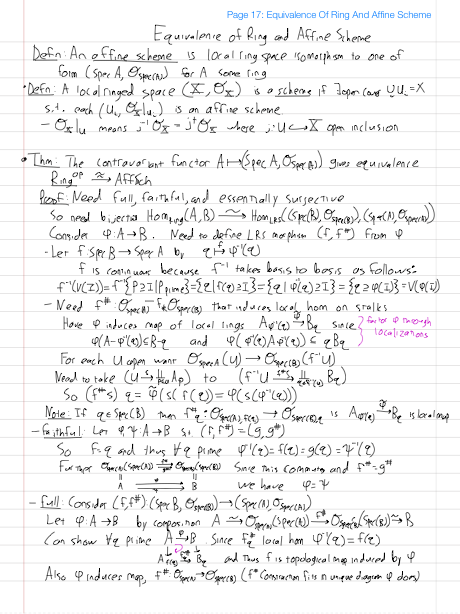 Page 17: Equivalence Of Ring And Affine Scheme
Equivalence of Ring and Affine Scheme
Defn: An affine scheme is local ring space isomorphism to one of
form (Spec A, O_Spec(A)) for A some ring
• Defn: A local ringed space (X, O_X) is a scheme if ∃ open cover ∪U_i = X
s.t. each (U_i, O_X|u_i) is an affine scheme
- O_X|u means j⁻¹O_X = j*O_X where j: U↪X open inclusion
• Thm: The contravariant functor A↦(Spec A, O_Spec(A)) gives equivalence
Ring^op ≅→ AffSch
Proof: Need full, faithful, and essentially surjective
So need bijection Hom_Ring(A,B) ~→ Hom_LRS((Spec(B), O_Spec(B)), (Spec(A), O_Spec(A)))
Consider φ: A→B. Need to define LRS morphism (f, f^#) from φ
- Let f: Spec B → Spec A by q ↦ φ⁻¹(q)
f is continuous because f⁻¹ takes basis to basis as follows:
f⁻¹(V(I)) = f⁻¹{P⊇I | P prime} = {q | f(q)⊇I} = {q | φ⁻¹(q)⊇I} = {q ⊇ φ(I)} = V(φ(I))
- Need f^#: O_Spec(A) → f_*O_Spec(B) that induces local hom on stalks
Have φ induces map of local rings A_φ⁻¹(q) →φ̃ B_q since
factor φ through
localizations
φ(A-φ⁻¹(q)) ⊆ B-q and φ(φ⁻¹(q)A_φ⁻¹(q)) ⊆ qB_q
For each U open want O_Spec A(U) → O_Spec(B)(f⁻¹U)
Need to take (U →s ∐ A_p) to (f⁻¹U →f^#s ∐ B_q)
So (f^#s) q = φ̃(s(f(q))) = φ(s(φ⁻¹(q)))
Note: If q∈Spec(B) then f^#_q: O_Spec(A),f(q) → O_Spec(B),q is A_φ⁻¹(q) →φ̃ B_q is local map
- faithful: Let φ,ψ: A→B s.t. (f, f^#) = (g, g^#)
So f=g and thus ∀q prime φ⁻¹(q) = f(q) = g(q) = ψ⁻¹(q)
Further O_Spec(A)(Spec(A)) ⇒ O_Spec(B)(Spec(B)) Since this commutes and f^#=g^#
A ⇒ B we have φ=ψ
- full: Consider (f, f^#) (Spec B, O_Spec(B)) → (Spec(A), O_Spec(A))
Let φ: A→B by composition A ~→ O_Spec(A)(Spec(A)) →f^# O_Spec(B)(Spec(B)) ~→ B
Can show ∀q prime A →φ B Since f^#_q local hom φ⁻¹(q) = f(q)
A_f(q) →f^#_q B_q and thus f is topological map induced by φ
Also φ induces map, f^#: O_Spec(A) → O_Spec(B) (f^# construction fits in unique diagram φ does)